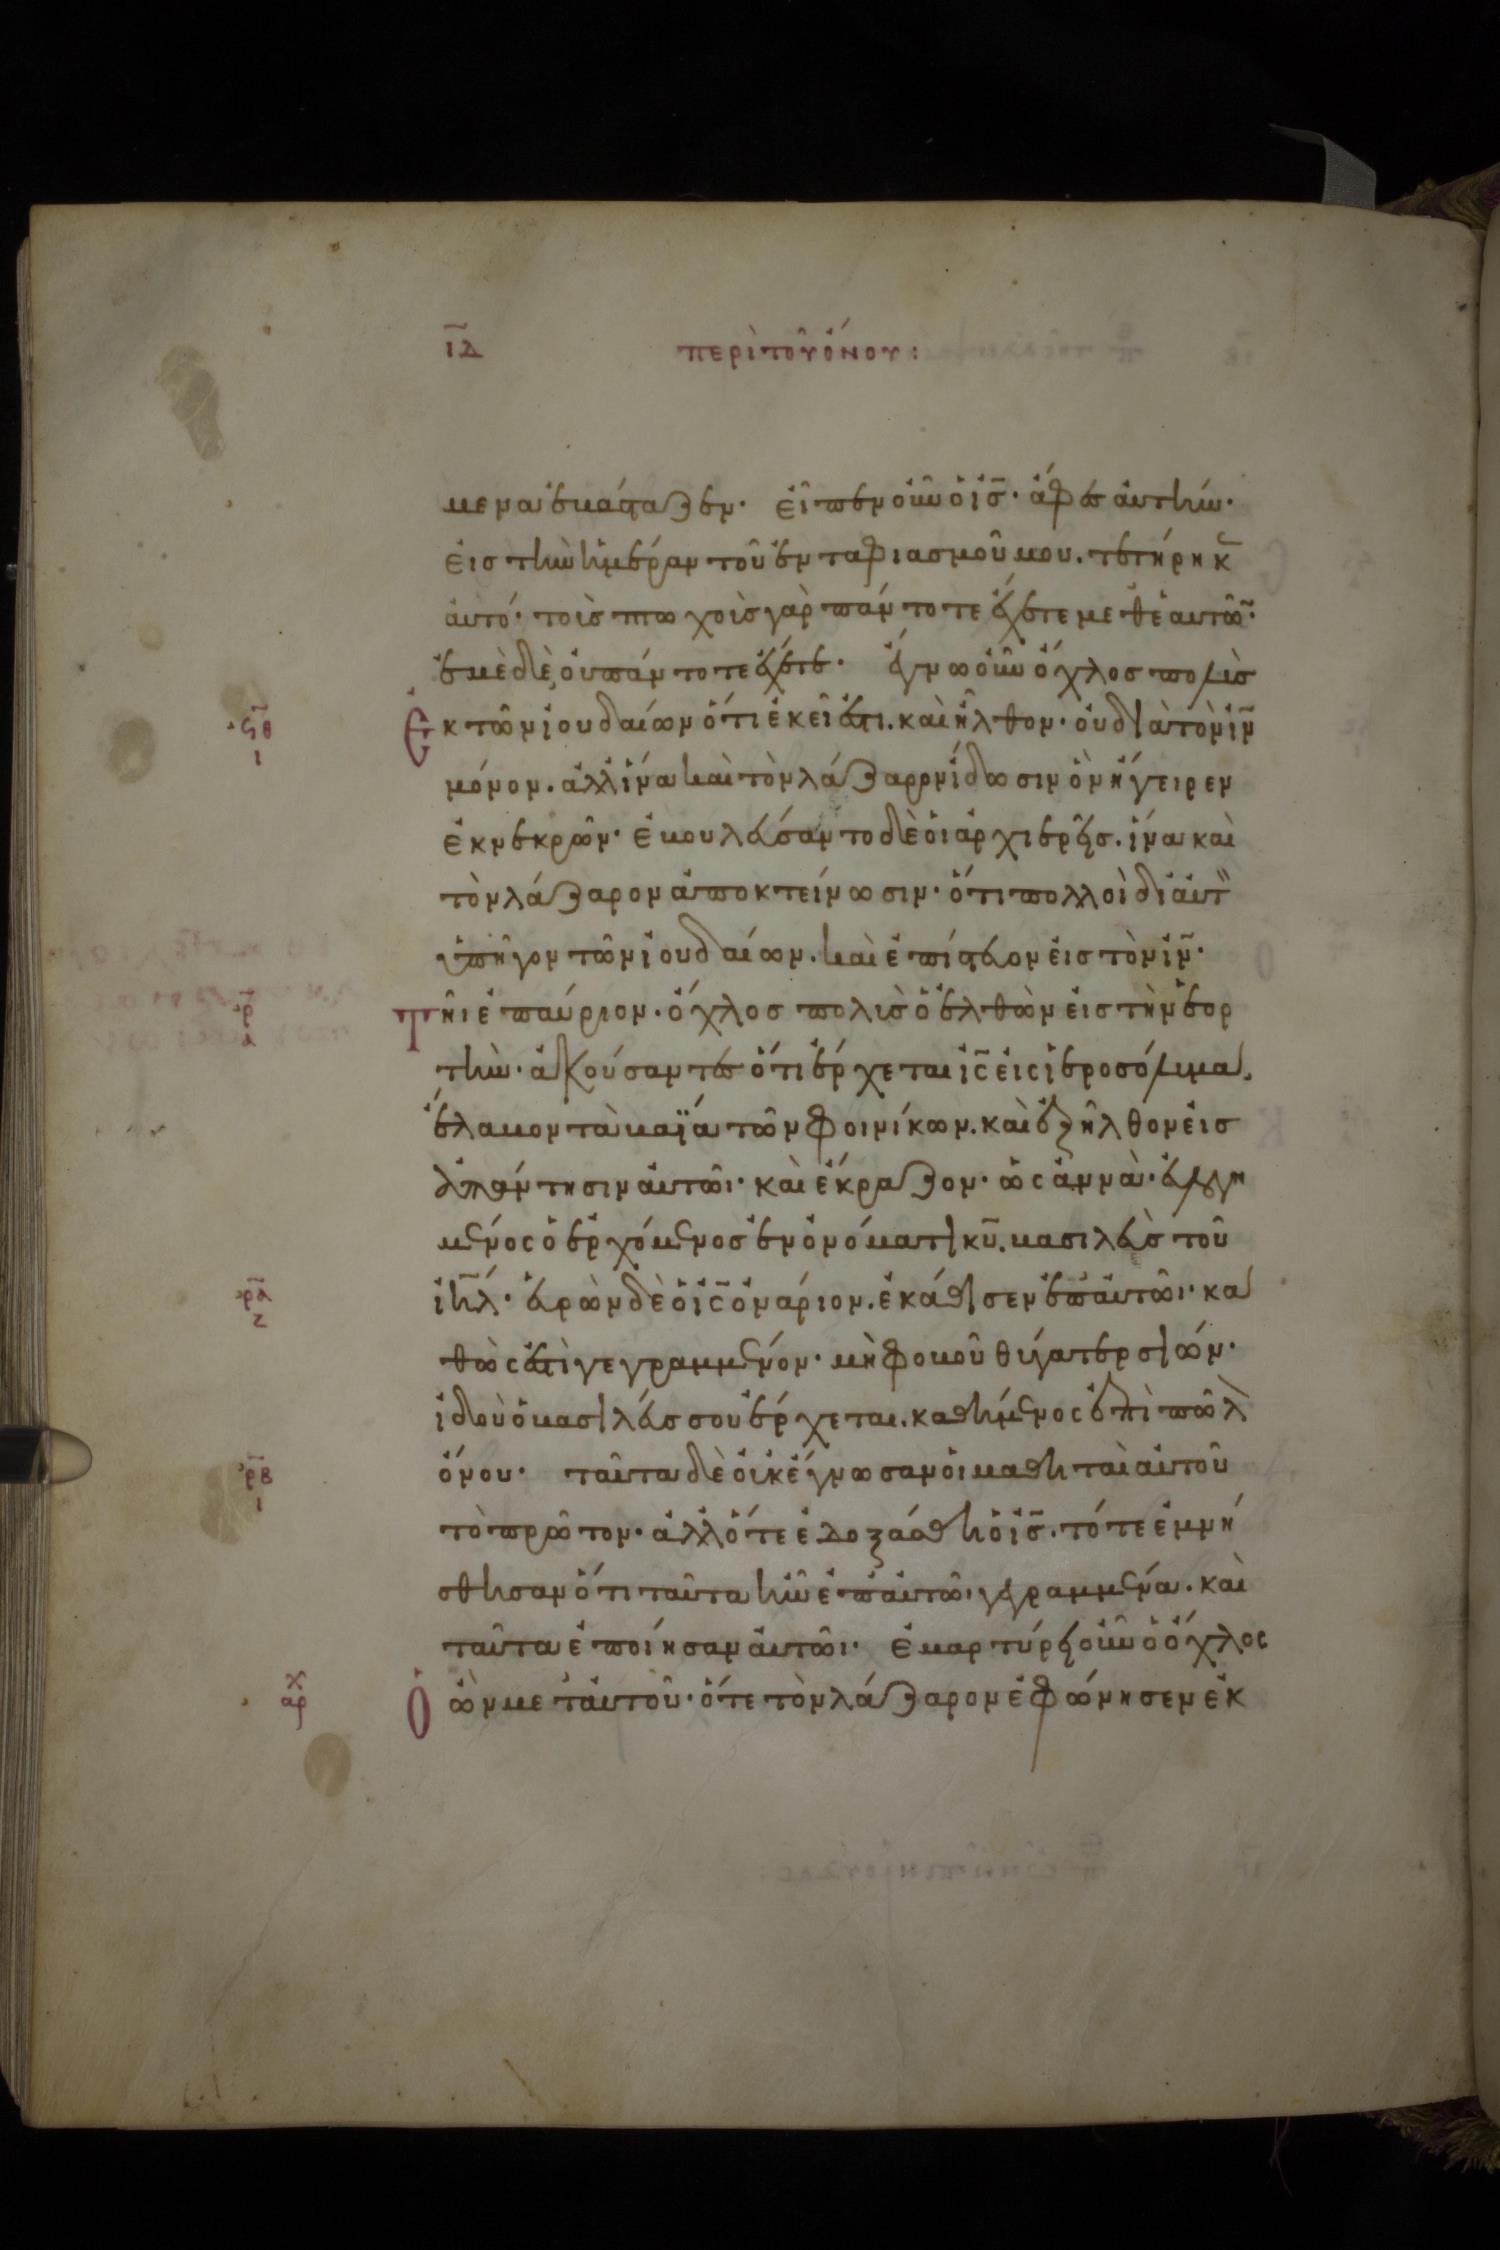 ι̅δ̅ περὶ τοῦ ὄνου:
μενα ἐβάσταζεν· εἶπεν οὖν ὁ ι̅ς̅· ἄφες αὐτὴν·
εἰς τὴν ἡμέραν τοῦ ἐνταφιασμοῦ μου. τετήρηκ
αὐτό· τοὺς πτωχοὺς γὰρ πάντοτε ἔχετε μεθ' ἑαυτῶν·
ἐμὲ δὲ οὐ πάντοτε ἔχετε· ἔγνω οὖν ὄχλος πολὺς
ϟθ
ι
ἐκ τῶν ἰουδαίων ὅτι ἐκεῖ ἐστι. καὶ ἦλθον· οὐ διὰ τὸν ι̅ν̅
μόνον. ἀλλ' ἵνα καὶ τὸν λάζαρον ἴδωσιν ὃν ἤγειρεν
ἐκ νεκρῶν· ἐβουλεύσαντο δὲ οἱ ἀρχιερεῖς. ἵνα καὶ
τὸν λάζαρον ἀποκτείνωσιν· ὅτι πολλοὶ δι' αὐτ
ὑπῆγον τῶν ἰουδαίων. καὶ ἐπίστευον εἰς τὸν ι̅ν̅·
ρ
α
τῆι ἐπαύριον· ὄχλος πολὺς ὁ ἐλθὼν εἰς τὴν ἑορ
τὴν· ἀκούσαντες ὅτι ἔρχεται ι̅ς̅ εἰς ἱεροσόλυμα,
ἔλαβον τὰ βαΐα τῶν φοινίκων. καὶ ἐξῆλθον εἰς
ἀπάντησιν αὐτῶι· καὶ ἔκραζον· ὡσαννὰ· εὐλογη
μένος ὁ ἐρχόμενος ἐν ὀνόματι κ̅υ̅. βασιλεὺς τοῦ
ρα
ζ
ι̅η̅λ̅· εὑρὼν δὲ ὁ ι̅ς̅ ὀνάριον. ἐκάθισεν ἐπ' αὐτῶι· κα
θώς ἐστὶ γεγραμμένον· μὴ φοβοῦ θύγατερ σιών·
ἰδοὺ ὁ βασιλεύς σου ἔρχεται. καθήμενος ἐπὶ πῶλ
ρβ
ι
ὄνου· ταῦτα δὲ οὐκ ἔγνωσαν οἱ μαθηταὶ αὐτοῦ
τὸ πρῶτον· ἀλλ' ὅτε ἐδοξάσθη ὁ ι̅ς̅. τότε ἐμνή
σθησαν ὅτι ταῦτα ἦν ἐπ' αὐτῶι γεγραμμένα. καὶ
ταῦτα ἐποίησαν αὐτῶι· ἐμαρτύρει οὖν ὁ ὄχλος
αρχ
ὁ ὢν μετ' αὐτοῦ· ὅτε τὸν λάζαρον ἐφώνησεν ἐκ